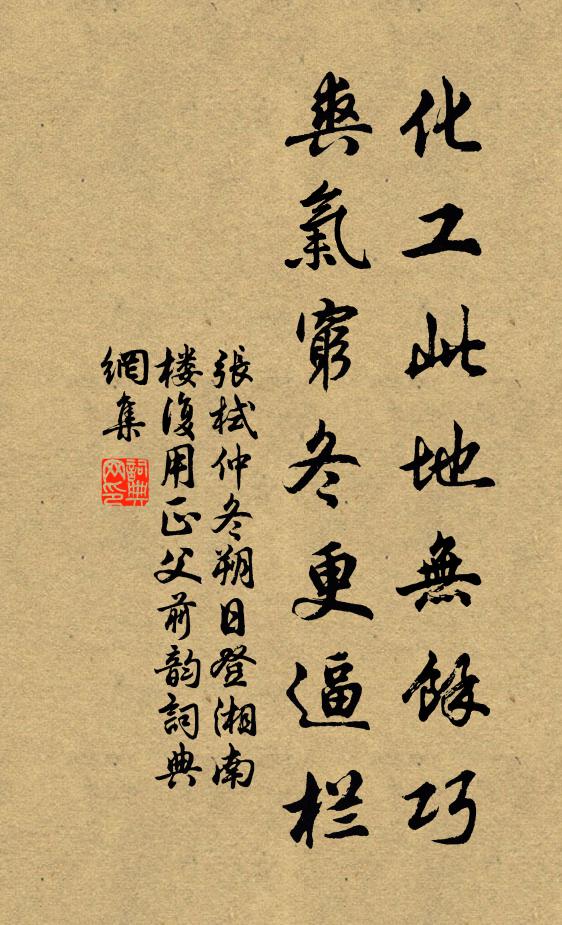 化工此地無餘巧
爽氣窮冬更逼栏
張栻仲冬朔日登湘南
楼復用正父前韵詞典
網集
詞典网印